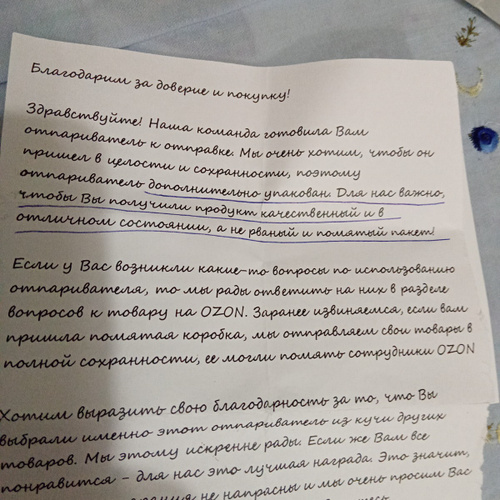 Благодарим за доверие и покупку!
Здравствуйте! Наша команда готовила Вам
отпариватель к отправке. Мы очень хотим, чтобы он
пришел в целости и сохранности, поэтому
отпариватель дополнительно упакован. Для нас важно,
чтобы Вы получили продукт качественный и в
отличном состоянии, а не рваный и помятый пакет!
Если у Вас возникли какие-то вопросы по использованию
отпаривателя, то мы рады ответить на них в разделе
вопросов к товару на OZON. Заранее извиняемся, если вам
пришла помятая коробка, мы отправляем свои товары в
полной сохранности, ее могли помять сотрудники OZON
Хотим выразить свою благодарность за то, что Вы
выбрали именно этот отпариватель из кучи других
товаров. Мы этому искренне рады. Если же Вам все
понравится - для нас это лучшая награда. Это значит,
не напрасны и мы очень просим Вас